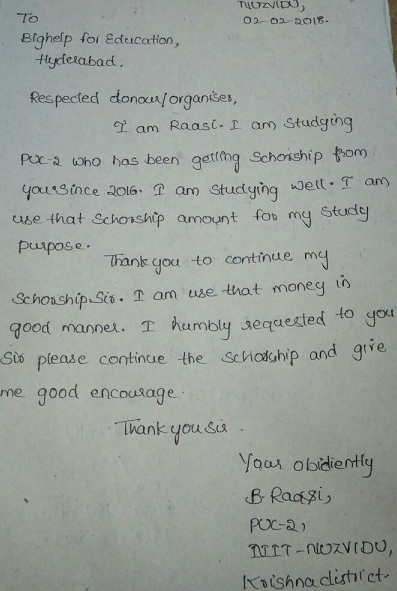 NUZVIDU,
To
02-02-2018.
Bighelp for Education,
Hyderabad.
Respected donour/organiser,
I am Raasi. I am studying
PUC-2 who has been getting Schorship from
you since 2016. I am studying well. I am
use that Schorship amount for my study
purpose.
Thank you to continue my
Schorship Sir. I am use that money in
good manner. I humbly requested to you
Sir please continue the Schorship and give
me good encourage.
Thank you Sir.
Your obidiently
B. Raasi,
PUC-2,
IIIT-NUZVIDU,
Krishna district.